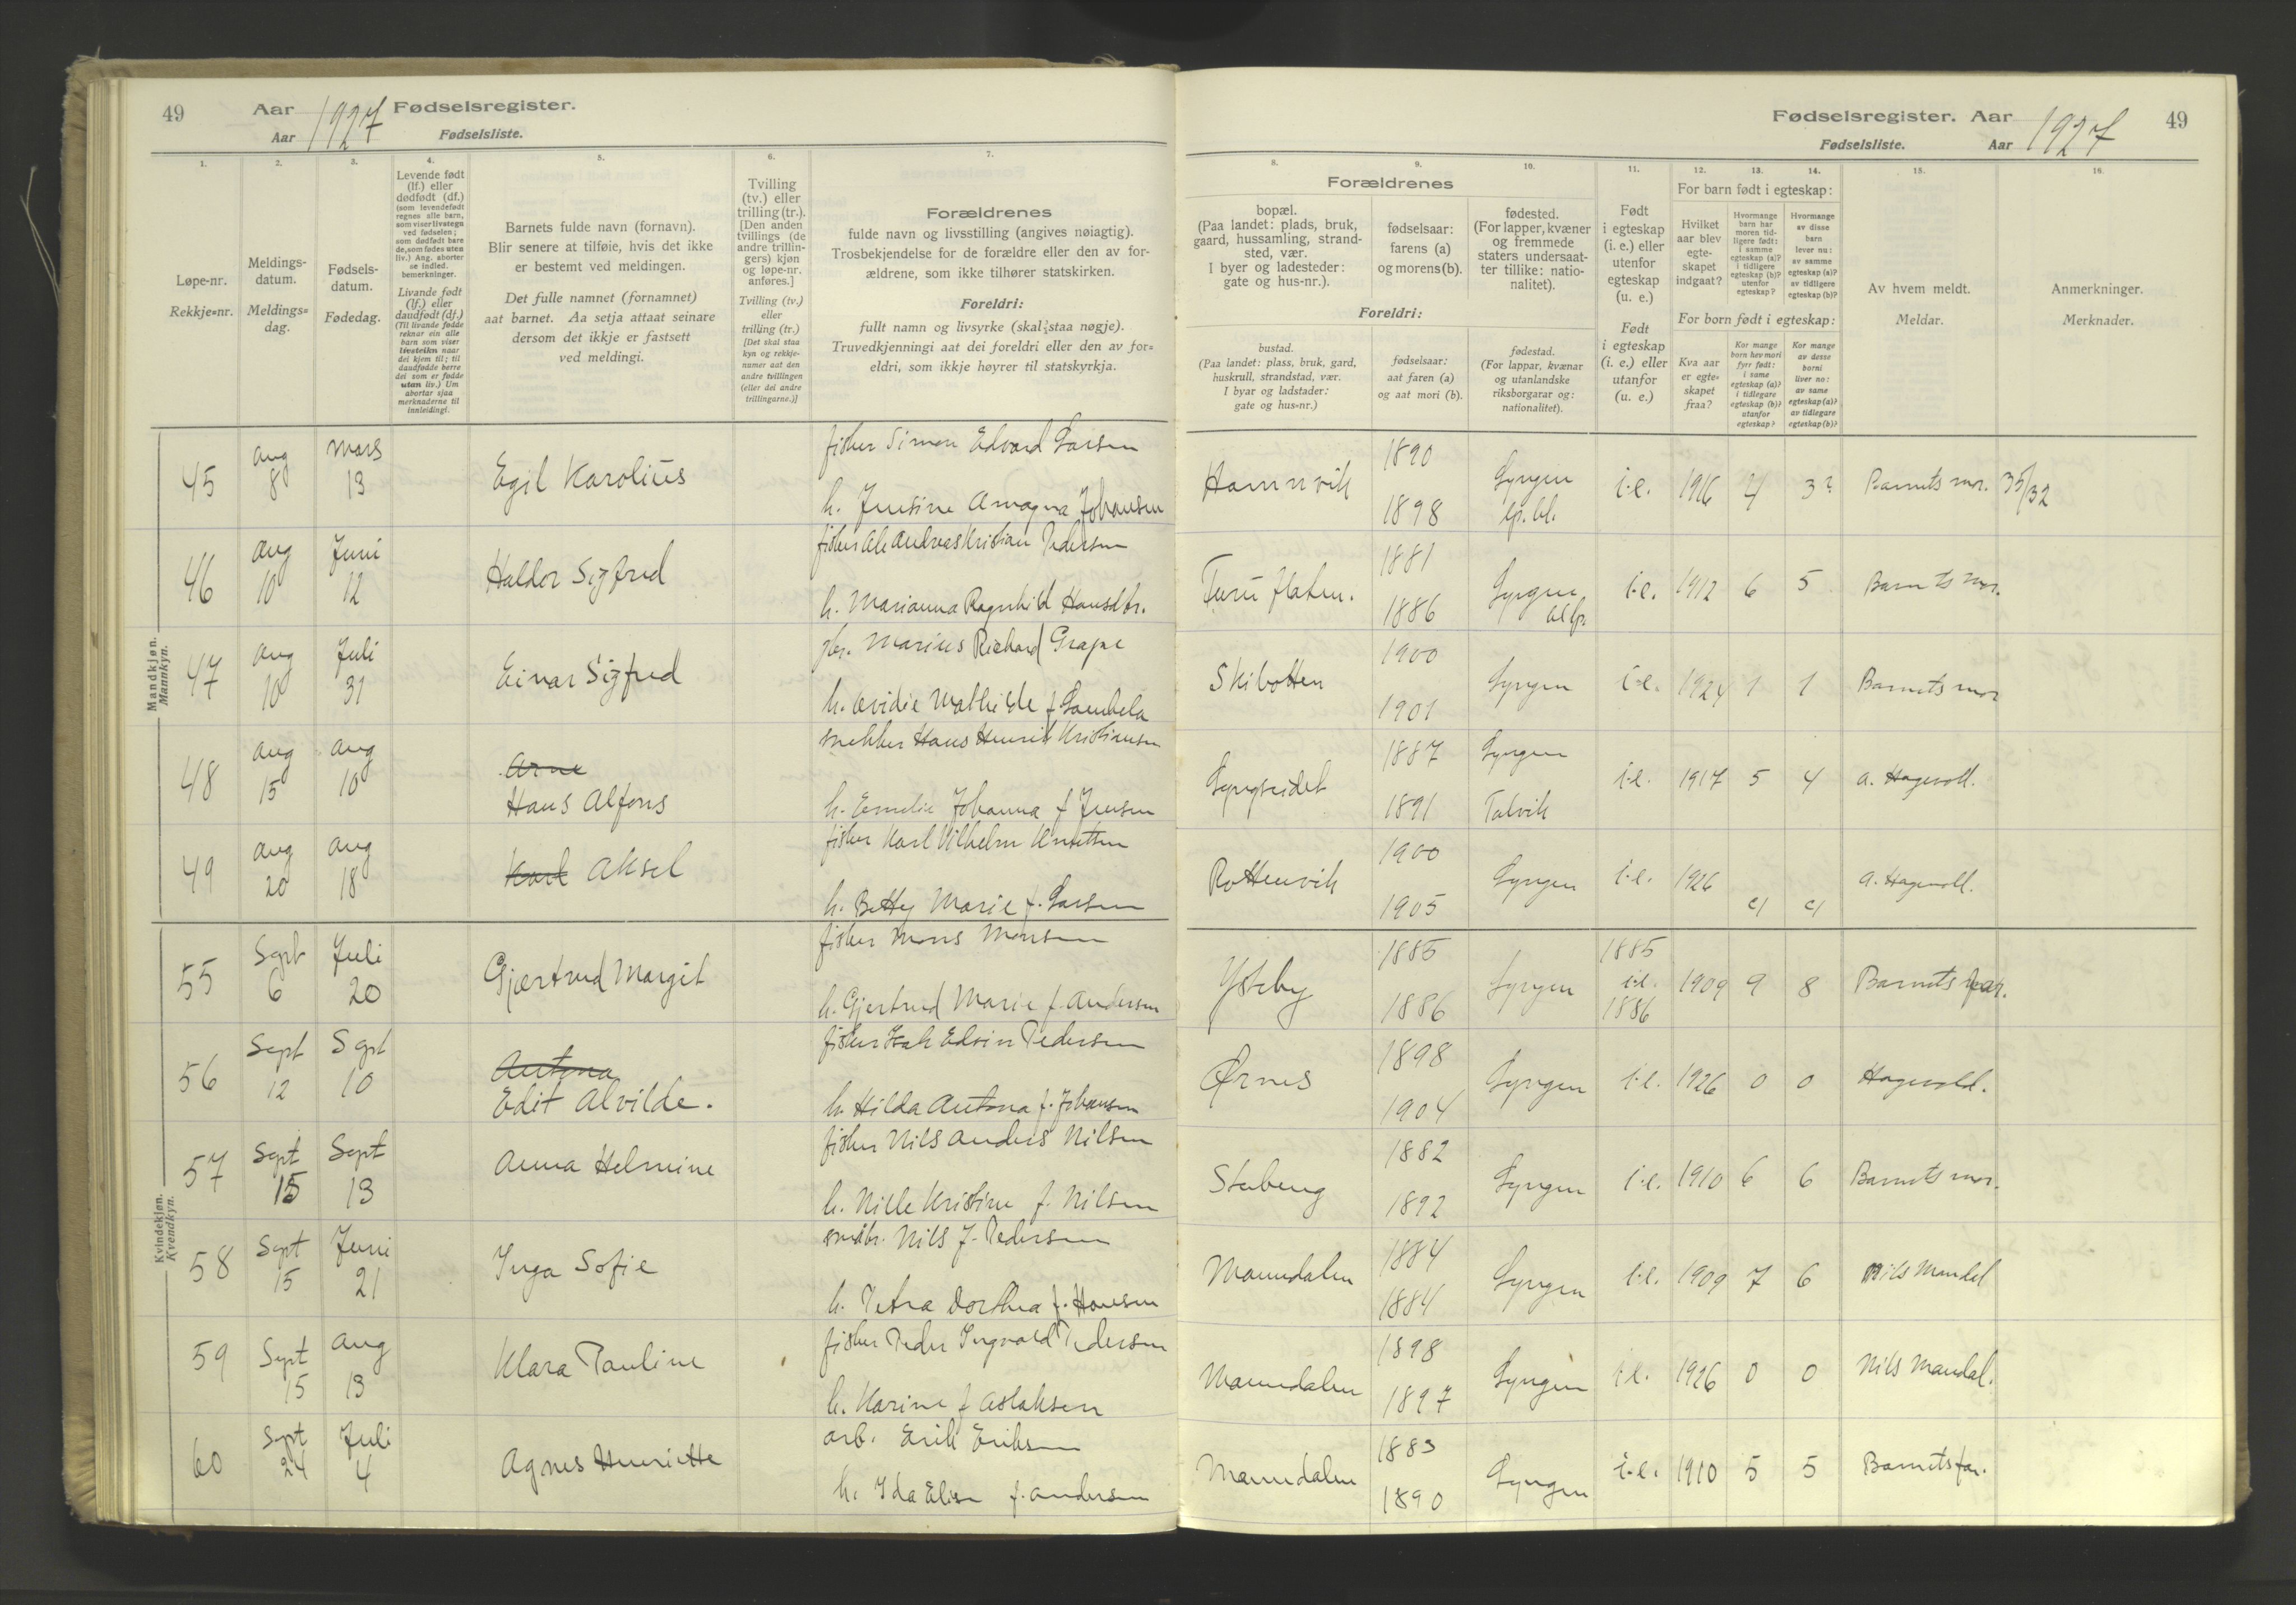 49 Aar 1927 Fødselsregister.
Aar Fødselsliste.
1. 2. 3. 4. 5. 6. 7.
Løpe-nr.
Rekkje=nr.
Meldings-
datum.
Meldings=
dag.
Fødsels-
datum.
Fødedag.
Levende født
(lf.) eller
dødfødt (df.)
(som levendefødt
regnes alle barn,
som viser livstegn
ved fødselen;
som dødfødt bare
de, som fødes uten
liv.) Ang. aborter
se indled.
bemerkninger.
Livande født
(lf.) eller
daudfødt (df.)
(Til livande fødde
reknar ein alle
barn som viser
livsteikn naar
dei kjem til; til
daudfødde berre
dei som er fødde
utan liv.) Um
abortar sjaa
merknaderne til
innleidingi.
Barnets fulde navn (fornavn).
Blir senere at tilføie, hvis det ikke
er bestemt ved meldingen.
Det fulle namnet (fornamnet)
aat barnet. Aa setja attaat seinare
dersom det ikkje er fastsett
ved meldingi.
Tvilling
(tv.) eller
trilling (tr.).
[Den anden
tvillings (de
andre trillin-
gers) kjøn
og løpe-nr.
anføres.]
Tvilling (tv.)
eller
trilling (tr.)
[Det skal staa
kyn og rekkje-
numer aat den
andre tvillingen
(eller dei andre
trillingarne.)]
Forældrenes
fulde navn og livsstilling (angives nøiagtig).
Trosbekjendelse for de forældre eller den av for-
ældrene, som ikke tilhører statskirken.
Foreldri:
fullt namn og livsyrke (skal staa nøgje).
Truvedkjenningi aat dei foreldri eller den av for=
eldri, som ikkje høyrer til statskyrkja.
Mandkjøn.
Mannkyn.
45 Aug 8 Mars 13 Egil Karolius fisker Simon Edvard Larsen
h. Jensine Amagna Johansen
46 Aug 10 Juni 12 Haldor Sigfred fisker Ole Andreas Kristian Pedersen
h. Marianna Ragnhild Hansdtr.
47 Aug 10 Juli 31 Einar Sigfred gbr. Marius Richard Grape
h. Ovidie Mathilde f. Lambela
48 Aug 15 Aug 10 Arne
Hans Alfons snekker Hans Henrik Kristiansen
h. Emelie Johanna f Jensen
49 Aug 20 Aug 18 Karl Aksel fisker Karl Vilhelm Knutsen
h. Betty Marie f. Larsen
Kvindekjøn.
Kvendkyn.
55 Sept 6 Juli 20 Gjertrud Margit fisker Mons Monsen
h. Gjertrud Marie f. Andersen
56 Sept 12 Sept 10 Antona
Edit Alvilde. fisker Isak Edvin Pedersen
h. Hilda Antona f. Johansen
57 Sept 15 Sept 13 Anna Helmine fisker Nils Anders Nilsen
h. Nille Kristine f. Nilsen
58 Sept 15 Juni 21 Inga Sofie småbr. Nils J. Pedersen
h. Petra Dorthea f. Hansen
59 Sept 15 Aug 13 Klara Pauline fisker Peder Ingvald Pedersen
h. Karine f Aslaksen
60 Sept 24 Juli 4 Agnes Henriette arb. Erik Eriksen
h. Ida Elise f. Andersen
Fødselsregister. Aar 1927 49
Fødselsliste. Aar
8. 9. 10. 11. 12. 13. 14. 15. 16.
Forældrenes
bopæl.
(Paa landet: plads, bruk,
gaard, hussamling, strand-
sted, vær.
I byer og ladesteder:
gate og hus-nr.).
fødselsaar:
farens (a)
og morens (b).
fødested.
(For lapper, kvæner
og fremmede
staters undersaat-
ter tillike: natio-
nalitet).
Foreldri:
bustad.
(Paa landet: plass, bruk, gard,
huskrull, strandstad, vær.
I byar og ladstader:
gate og hus=nr.)
fødselsaar:
aat faren (a)
og aat mori (b).
fødestad.
(For lappar, kvænar
og utanlandske
riksborgarar og:
nationalitet).
Født
i egteskap
(i. e.) eller
utenfor
egteskap
(u. e.)
Født
i egteskap
(i. e.) eller
utanfor
(u. e.)
For barn født i egteskap:
Hvilket
aar blev
egte-
skapet
indgaat?
Hvormange
barn har
moren tid-
ligere født:
i samme
egteskap (a)?
i tidligere
egteskap (b)?
utenfor
egteskap?
Hvormange
av disse
barn
lever nu:
av samme
egteskap (a)?
av tidligere
egteskap (b)?
For born født i egteskap:
Kva aar
er egte=
skapet
fraa?
Kor mange
born hev mori
fyrr født:
i same
egteskap (a)?
i tidlegare
egteskap (b)?
utanfor
egteskap?
Kor mange
av desse
borni
liver no:
av same
egteskap (a)?
av tidlegare
egteskap (b)?
Av hvem meldt.
Meldar.
Anmerkninger.
Merknader.
Hamnvik 1890 1898 Lyngen lp. bl. i.e. 1916 4 3? Barnets mor. 35/32
Furuflaten. 1881 1886 Lyngen bl lp. i.e. 1912 6 5 Barnets mor.
Skibotten 1900 1901 Lyngen i.e. 1924 1 1 Barnets mor
Lyngseidet 1887 1891 Lyngen Talvik i.e. 1917 5 4 A. Hagevoll.
Rottenvik 1900 1905 Lyngen i.e. 1926 A. Hagevoll.
Ytreby 1885 1886 Lyngen 1885 i.e. 1886 1909 9 8 Barnets far.
Ørnes 1898 1904 Lyngen i.e. 1926 0 0 Hagevold.
Steberg 1882 1892 Lyngen i.e. 1910 6 6 Barnets mor.
Manndalen 1884 1884 Lyngen i.e. 1909 7 6 Nils Mandal
Manndalen 1898 1897 Lyngen i.e. 1926 0 0 Nils Mandal.
Manndalen 1883 1890 Lyngen i.e. 1910 5 5 Barnets far.